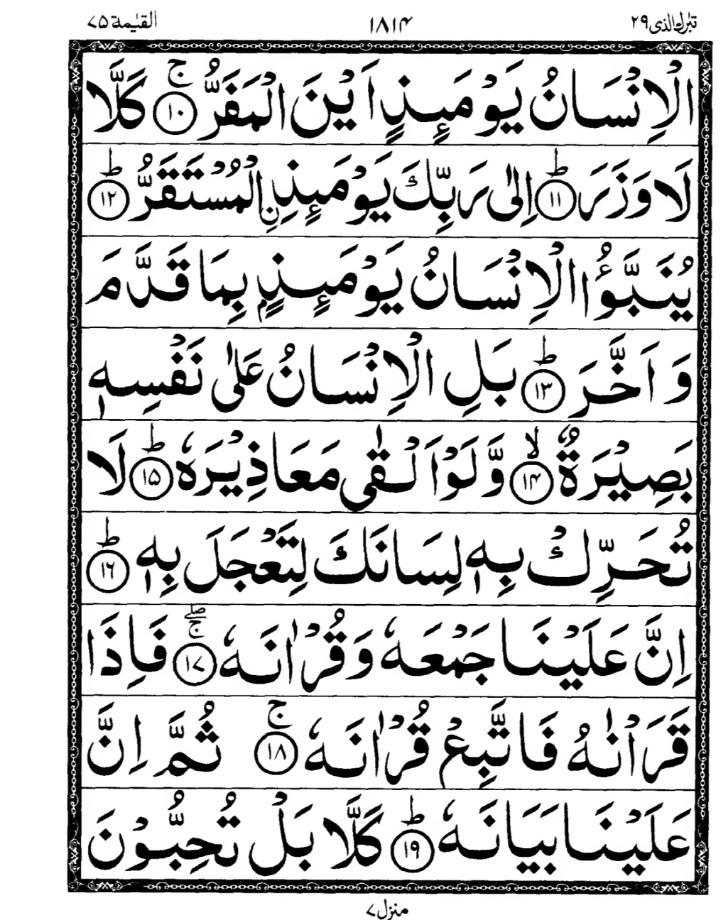 تبٰرك الذی ۲۹ ۱۸۱۴ القیٰمة ۷۵
الْاِنْسَانُ يَوْمَئِذٍ اَيْنَ الْمَفَرُّ ۚ ﴿۱۰﴾ كَلَّا
لَا وَزَرَ ؕ ﴿۱۱﴾ اِلٰى رَبِّكَ يَوْمَئِذِ ۨ الْمُسْتَقَرُّ ؕ ﴿۱۲﴾
يُنَبَّؤُا الْاِنْسَانُ يَوْمَئِذٍۭ بِمَا قَدَّمَ
وَ اَخَّرَ ؕ ﴿۱۳﴾ بَلِ الْاِنْسَانُ عَلٰى نَفْسِهٖ
بَصِيْرَةٌ ۙ ﴿۱۴﴾ وَّلَوْ اَلْقٰى مَعَاذِيْرَهٗ ؕ ﴿۱۵﴾ لَا
تُحَرِّكْ بِهٖ لِسَانَكَ لِتَعْجَلَ بِهٖ ؕ ﴿۱۶﴾
اِنَّ عَلَيْنَا جَمْعَهٗ وَقُرْاٰنَهٗ ۚۖ ﴿۱۷﴾ فَاِذَا
قَرَاْنٰهُ فَاتَّبِعْ قُرْاٰنَهٗ ۚ ﴿۱۸﴾ ثُمَّ اِنَّ
عَلَيْنَا بَيَانَهٗ ؕ ﴿۱۹﴾ كَلَّا بَلْ تُحِبُّوْنَ
منزل ۷